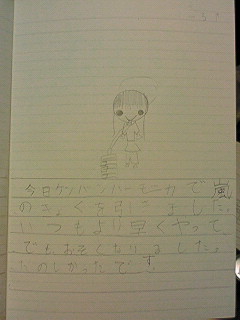 今日ケンバンハーモニカで嵐
のきょくを弓きました。
いつもより早くやって
でもおそくもりました。
たのしかったです